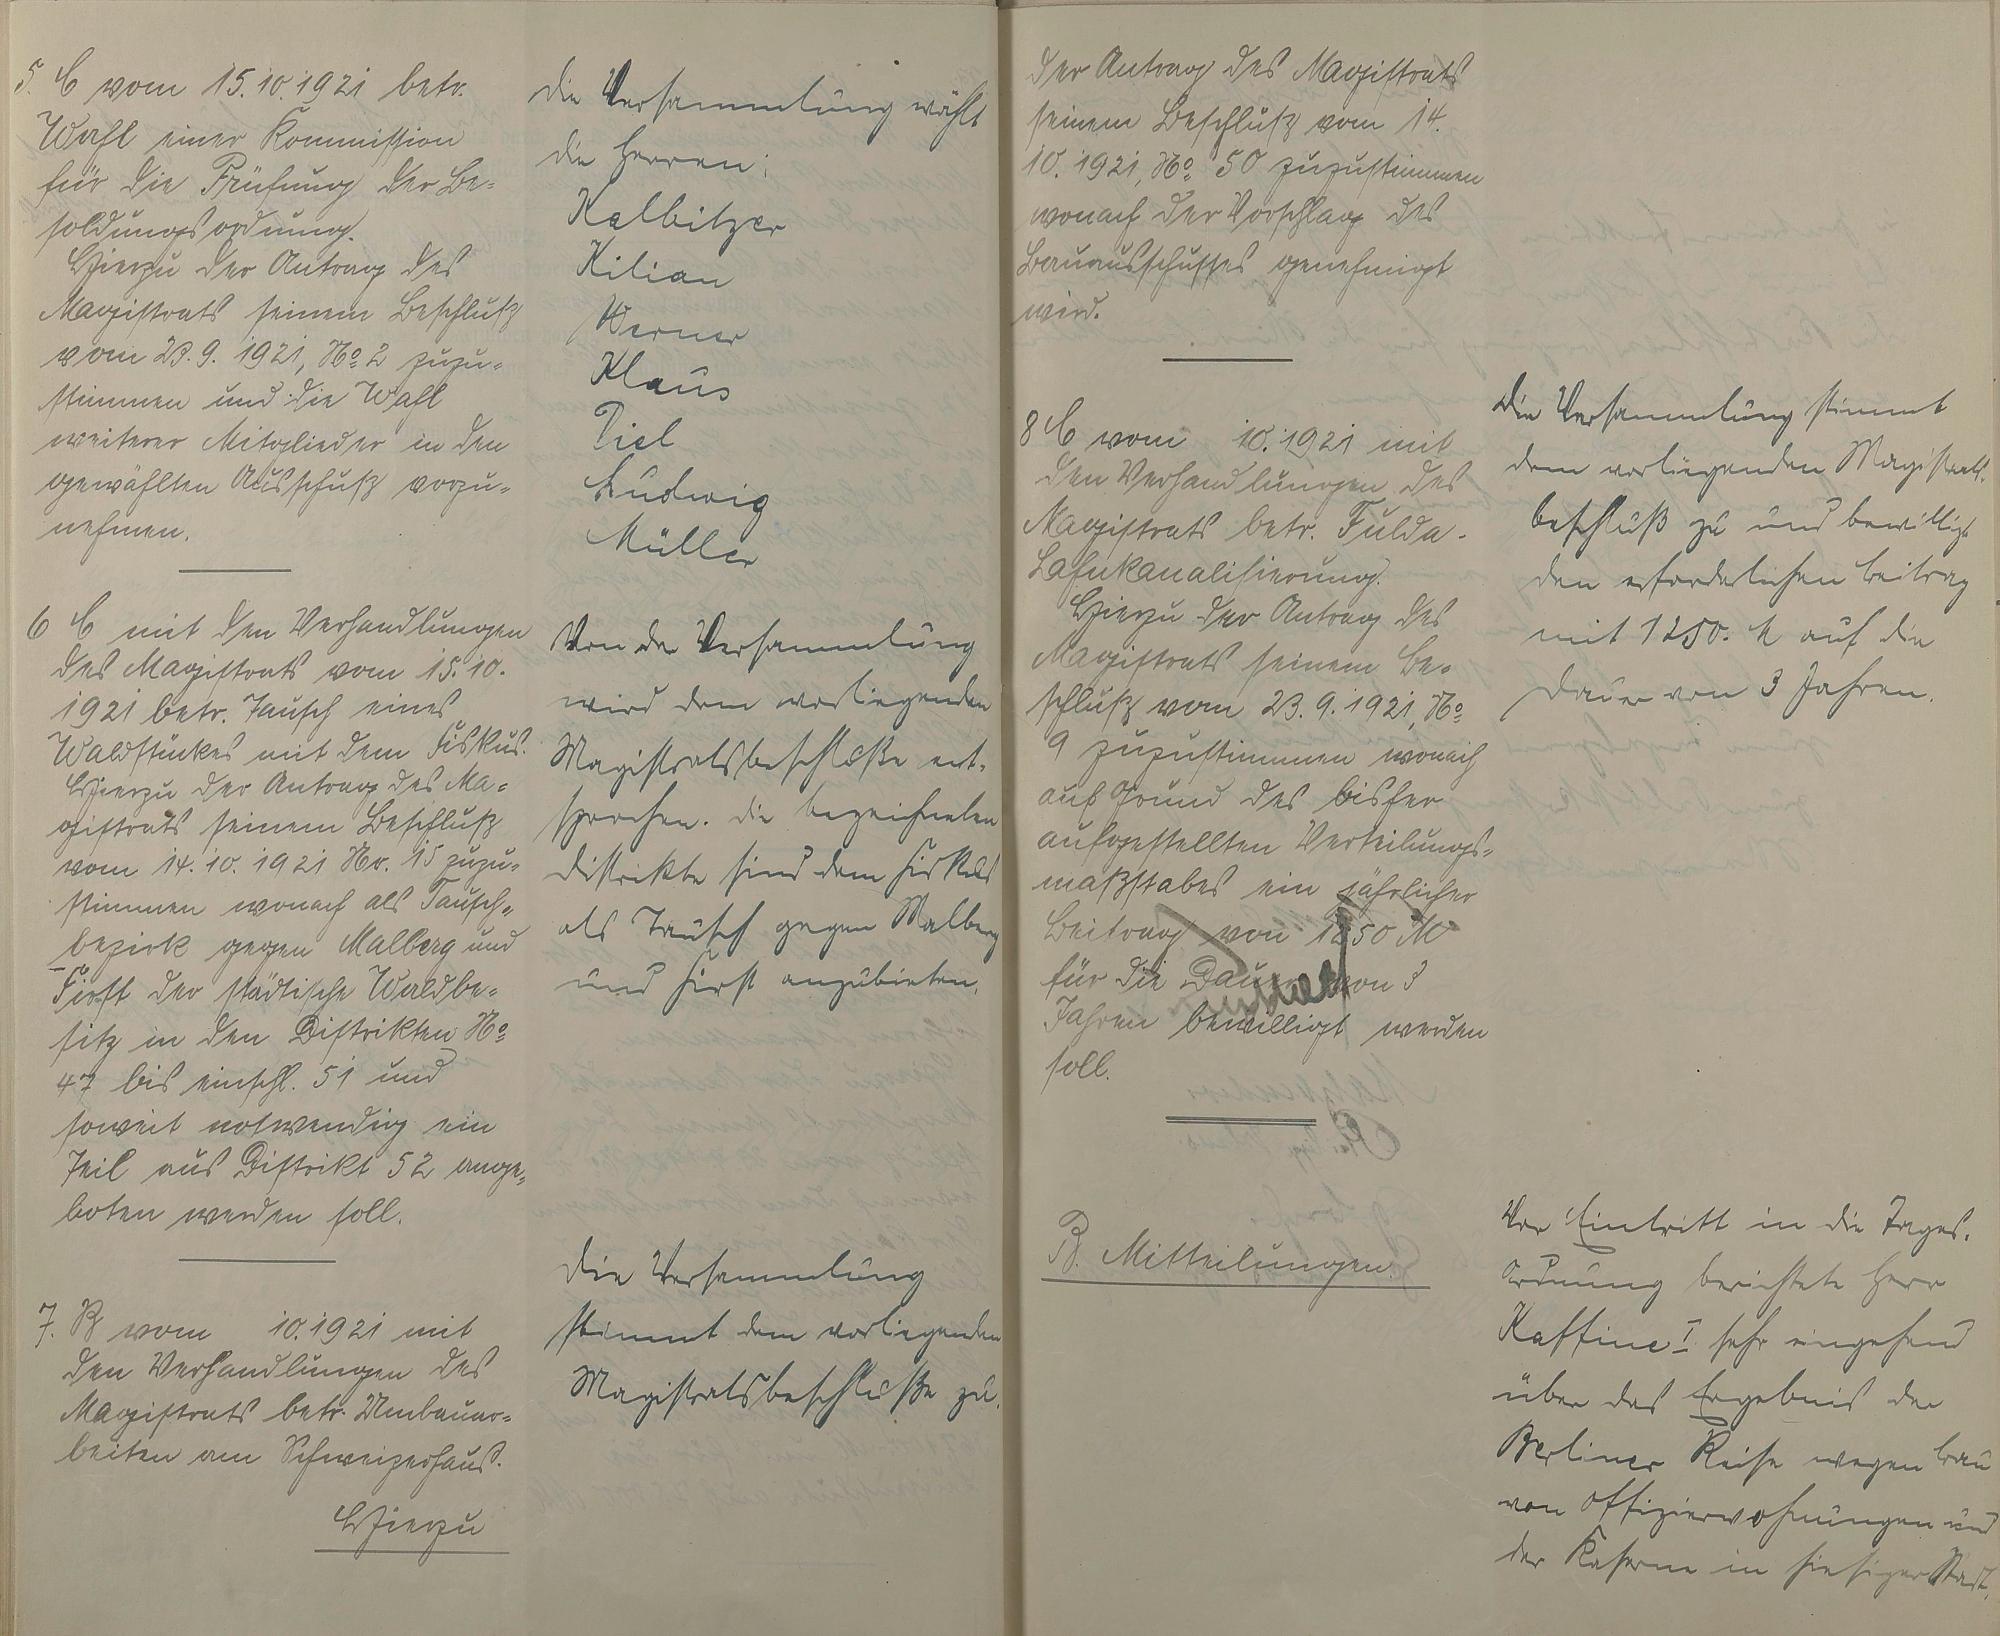 5. C vom 15.10.1921 betr.
Wahl einer Kommission
für die Prüfung der Be-
soldungsordnung.
Hierzu der Antrag des
Magistrats seinem Beschluß
vom 23.9.1921, No 2 zuzu-
stimmen und die Wahl
weiterer Mitglieder in den
gewählten Ausschuß vorzu-
nehmen.
Die Versammlung wählt
die Herren:
Kalbitzer
Kilian
Werner
Klaus
Diel
Ludwig
Müller
6 C mit den Verhandlungen
des Magistrats vom 15.10.
1921 betr. Tausch eines
Waldstückes mit dem Fiskus.
Hierzu der Antrag des Ma-
gistrats seinem Beschluß
vom 14.10.1921 Nr. 15 zuzu-
stimmen wonach als Tausch-
bezirk gegen Malberg und
First der städtische Waldbe-
sitz in den Distrikten No
47 bis einschl. 51 und
soweit notwendig ein
Teil aus Distrikt 52 ange-
boten werden soll.
Von der Versammlung
wird dem vorliegenden
Magistratsbeschluße ent-
sprochen. Die bezeichneten
Distrikte sind dem Fiskus
als Tausch gegen Malberg
und First anzubieten.
7. B vom 10.1921 mit
den Verhandlungen des
Magistrats betr. Umbauar-
beiten am Schweizerhaus.
Hierzu
Die Versammlung
stimmt dem vorliegenden
Magistratsbeschluße zu.
der Antrag des Magistrats
seinem Beschluß vom 14.
10.1921, No 50 zuzustimmen
wonach der Vorschlag des
Bauausschusses genehmigt
wird.
8 C vom 10.1921 mit
den Verhandlungen des
Magistrats betr. Fulda-
Lahnkanalisierung.
Hierzu der Antrag des
Magistrats seinem Be-
schluß vom 23.9.1921, No
9 zuzustimmen wonach
auf Grund des bisher
aufgestellten Verteilungs-
maßstabes ein jährlicher
Beitrag von 1250 M
für die Dauer von 3
Jahren bewilligt werden
soll.
Die Versammlung stimmt
dem vorliegenden Magistrats-
beschluß zu und bewilligt
den erforderlichen Beitrag
mit 1250. M auf die
Dauer von 3 Jahren.
B. Mitteilungen.
Vor Eintritt in die Tages-
Ordnung berichtete Herr
Kaffine I. sehr eingehend
über das Ergebnis der
Berliner Reise wegen Bau
von Offizierwohnungen und
der Kaserne in hiesiger Stadt.